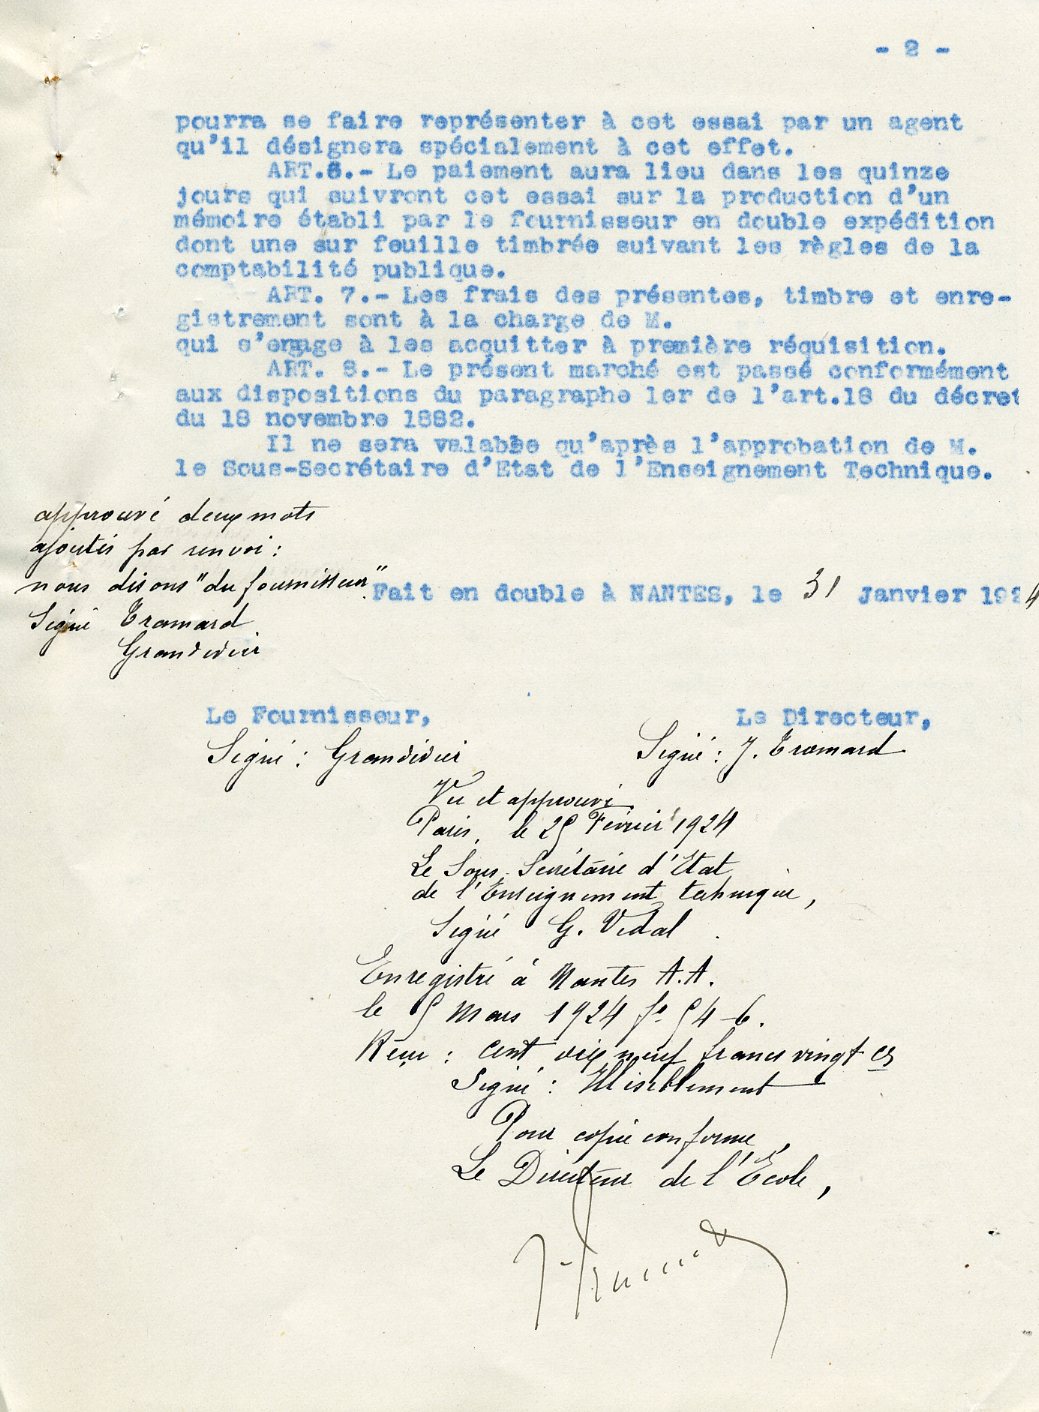 - 2 -
pourra se faire représenter à cet essai par un agent
qu'il désignera spécialement à cet effet.
ART.6.- Le paiement aura lieu dans les quinze
jours qui suivront cet essai sur la production d'un
mémoire établi par le fournisseur en double expédition
dont une sur feuille timbrée suivant les règles de la
comptabilité publique.
ART. 7.- Les frais des présentes, timbre et enre-
gistrement sont à la charge de M.
qui s'engage à les acquitter à première réquisition.
ART. 8.- Le présent marché est passé conformément
aux dispositions du paragraphe 1er de l'art.18 du décret
du 18 novembre 1882.
Il ne sera valable qu'après l'approbation de M.
le Sous-Secrétaire d'Etat de l'Enseignement Technique.
approuvé deux mots
ajoutés par renvoi :
nous disons "du fournisseur".
Signé Tramard
Grandidier
Fait en double à NANTES, le 31 Janvier 1924
Le Fournisseur,
Signé : Grandidier
Le Directeur,
Signé : J. Tramard
Vu et approuvé
Paris, le 25 Février 1924
Le Sous-Secrétaire d'Etat
de l'Enseignement technique,
Signé G. Vidal
Enregistré à Nantes A.A.
le 5 Mars 1924 fo 54 c 6.
Reçu : cent dix neuf francs vingt cs
Signé :
Pour copie conforme,
Le Directeur de l'École,